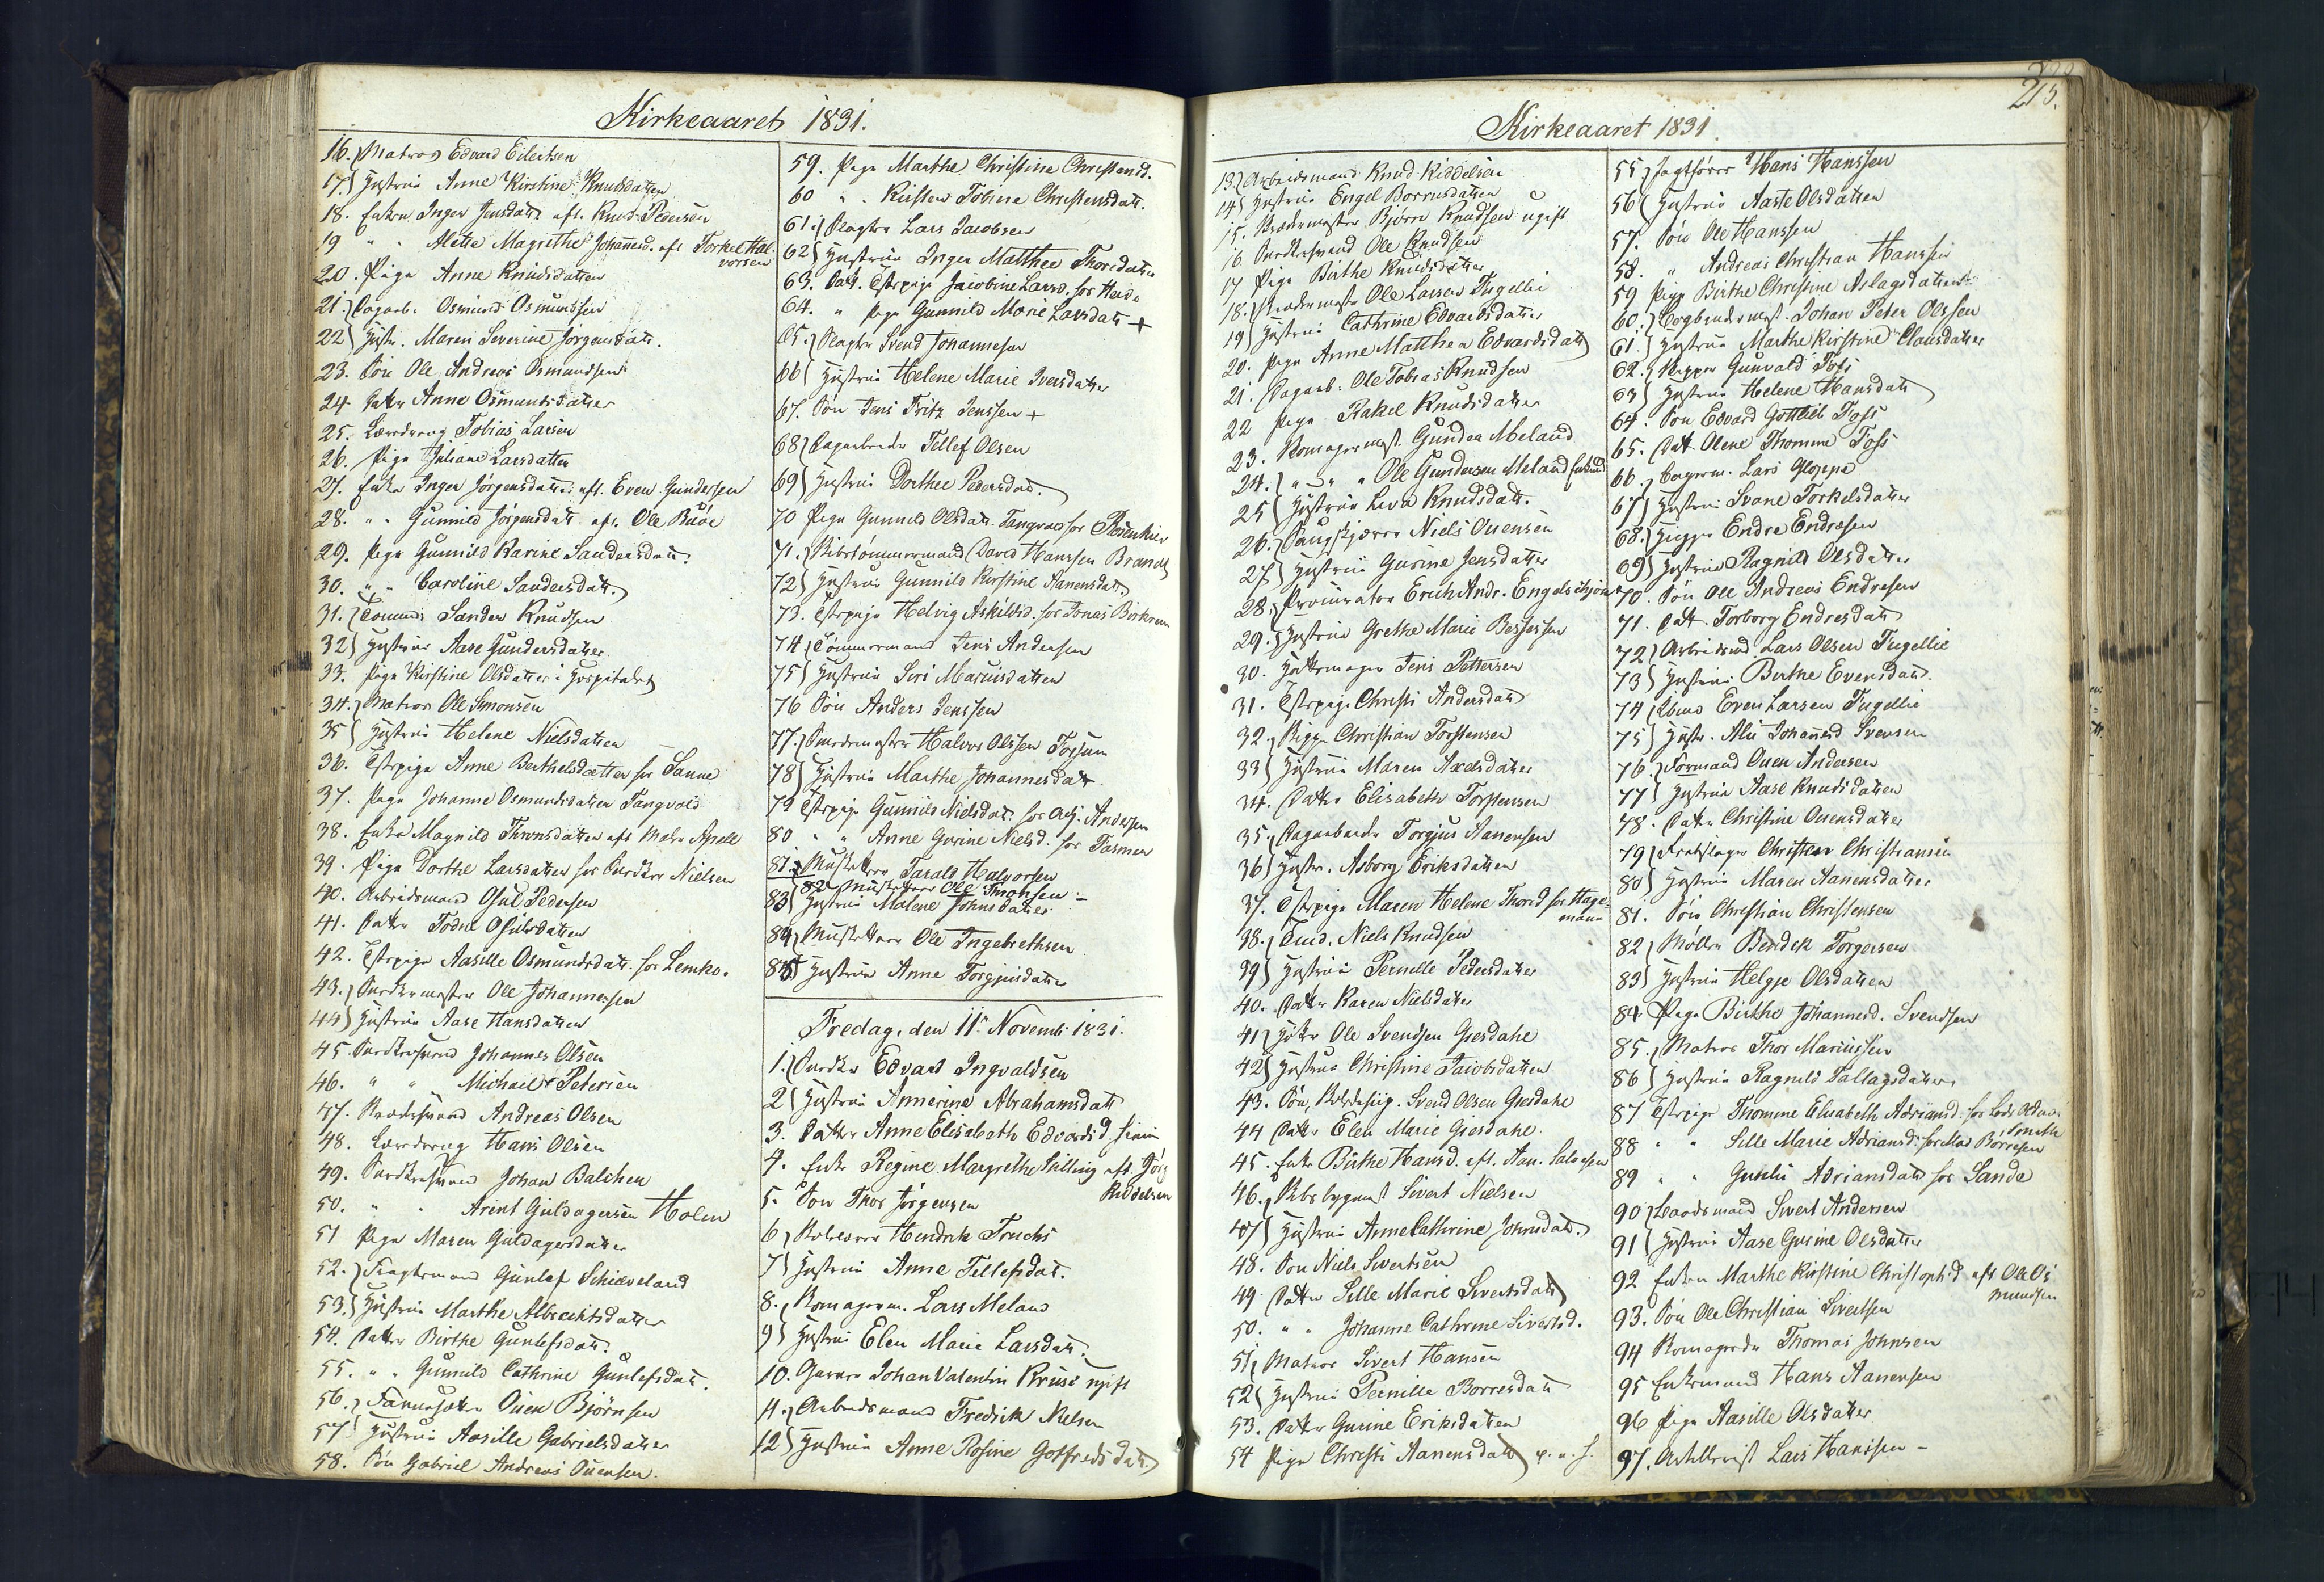 Kirkeaaret 1831.
16. Matros Edvard Eilertsen
17. Hustrue Anne Kirstine Knudsdatter
18. Enken Inger Jensdatt. eft. Knud Pedersen
19 " " Alette Magrethe Johannesd. eft Torkel Hal-
vorsen
20. Pige Anne Knudsdatter
21. Dagarb. Osmund Osmundsen
22 Hustr. Maren Severine Jörgensdatt.
23. Sön Ole Andreas Osmundsen
24 Datter Anne Osmundsdatter
25. Læredreng Tobias Larsen
26. Pige Juliane Larsdatter
27. Enke Inger Jörgensdatt. eft. Even Gundersen
28. " " Gunnild Jörgensdatt eft. Ole Buöe
29. Pige Gunnild Karine Sandersdatt.
30. " " Caroline Sandersdatt.
31. Tömmerm. Sander Knudsen
32 Hustrue Aase Gundersdatter
33. Pige Kirstine Olsdatter i Hospitalet
34. Matros Ole Simonsen
35 Hustrue Helene Nielsdatter
36. Tstpige Anne Berthelsdatter for Sanne
37. Pige Johanne Osmundsdatter Tangvald
38. Enke Magnild Thronsdatter eft Mats Apelle
39. Pige Dorthe Larsdatter for Snedker Nielsen
40. Arbeidsmand Osul Pedersen
41. Datter Todne Osulsdatter
42. Tstpige Aasille Osmundsdatt. for Lemko.
43. Snedkermester Ole Johannessen
44 Hustrue Aase Hansdatter
45. Snedkersvend Johannes Olsen
46. " " Michael Petersen
47. Svend Andreas Olsen
48. Læredreng Hans Olsen
49. Snedkersvend Johan Balchen
50. " " Arent Guldagersen Holm
51 Pige Maren Guldagersdatter
52. Fragtemand Gunlef Schiæveland
53. Hustrue Marthe Albrechtsdatter
54. Datter Birthe Gunlefsdatt.
55. " " Gunnild Cathrine Gunlefsdatt.
56. Ouen Björnsen
57 Hustrue Aasille Gabrielsdatter
58. Sön Gabriel Andreas Ouensen.
59. Pige Marthe Christine Christensd.
60 " . Kirsten Tobine Christensdatt.
61. Slagter Lars Jacobsen
62 Hustrue Inger Matthea Thorsdatter
63. Datt. Tstpige Jacobine Larsd. for Heide
64. " Pige Gunnild Marie Larsdatt +
65. Slagter Svend Johannesen
66 Hustrue Helene Marie Iversdatter
67. Sön Jens Fritz Jenssen +
68 Dagarbeider Tellef Olsen
69 Hustrue Dorthee Pedersdatt.
70 Pige Gunnild Olsdatt. Tangvald for Rosenkier
71. Skibstömmermand David Hanssen Brandt
72 Hustrue Gunnild Kirstine Aanensdatt.
73. Tstpige Helvig Askildsd. for Jonas Birkrem
74 Tömmermand Jens Andersen
75 Hustrue Siri Marcusdatter
76 Sön Anders Jenssen
77. Snedkermester Halvor Olssen Torjum
78 Hustrue Marthe Johannesdatt
79 Tstpige Gunnild Nielsdat. for Adj. Andersen
80 " " Anne Gurine Nielsd. for Tasmer
81. Musketteer Tarald Halvorsen
82 Musketteer Ole Simonsen -
83 Hustrue Malene Johnsdatter
84 Musketteer Ole Ingebrethsen
85 Hustrue Anne Torgjusdatter
Fredag, den 11te Novemb: 1831.
1. Snedker Edvart Ingvaldsen
2 Hustrue Annerine Abrahamsdatt
3. Datter Anne Elisabeth Edvardsd.
4. Enke Regine Margrethe Silling eft. Jörg
Riddelsen
5. Sön Thor Jörgensen
6 Hendrik Fruchs
7 Hustrue Anne Tellefsdat.
8. Komagerm. Lars Meland
9 Hustrue Elen Marie Larsdatt.
10. Garver Johan Valentin Kruse ugift
11. Arbeidsmand Fredrik Nielsen
12 Hustrue Anne Rosine Gotfredsdatt
215.
Kirkeaaret 1831.
13. Arbeidsmand Knud Riddelsen
14 Hustrue Engel Borresdatter
15. Björn Knudsen ugift
16. Snedkersvend Ole Knudsen
17 Pige Birthe Knudsdatter
18. Ole Larsen Tingellie
19 Hustrue Cathrine Edvardsdatter
20. Pige Anne Matthea Edvardsdatt
21. Dagarb. Ole Tobias Knudsen
22 Pige Rakel Knudsdatter
23. Komagermest. Gunder Meland
24. " - " Ole Gundersen Meland Enkemd
25 Hustrue Leva Knudsdatt.
26. Niels Ouensen
27 Hustrue Gurine Jensdatter
28. Procurator Erich Andr. Engelschjön
29. Hustrue Grethe Marie Bessesen
30. Hattemager Jens Pettersen
31. Tstpige Christi Andersdatt
32. Rigger Christian Torstensen
33 Hustrue Maren Axelsdatter
34. Datter Elisabeth Torstensen
35. Dagarbeider Torgjus Aanensen
36 Hustr. Asborg Eriksdatter
37. Tstpige Maren Helene Thorsd for Hage-
mann
38. Niels Knudsen
39 Hustrue Pernille Pedersdatter
40. Datter Karen Nielsdatter
41 Höker Ole Svendsen Gresdahl
42 Hustrue Christine Jacobsdatter
43. Sön, Svend Olsen Gresdahl
44 Datter Elen Marie Gresdahl.
45. Enke Birthe Hansd. eft. Aan. Salvesen
46. Skibsbygm. Sivert Nielsen
47 Hustrue Anne Cathrine Johnsdatt.
48. Sön Niels Sivertsen
49 Datter Sille Marie Sivertsdatt
50. " " Johanne Cathrine Sivertsd.
51 Matros Sivert Hansen
52 Hustrue Pernille Borresdatt
53. Datter Gurine Eriksdatter
54 Pige Christi Aanensdatt
55 Jagtförer Hans Hanssen
56 Hustrue Aaste Olsdatter
57. Sön Ole Hanssen
58. " Andreas Christian Hanssen
59 Pige Birthe Christine Aslagsdatter
60. Bogbindermest. Johan Peter Olssen
61. Hustrue Marthe Kirstine Clausdatter
62. Skipper Gunvald Foss
63 Hustrue Helene Hansdatt
64. Sön Edvard Gottlieb Foss
65. Datt. Olene Thomine Foss
66. Bagerm. Lars Gloppe
67 Hustrue Svane Torkelsdatter
68. Endre Endresen
69 Hustrue Ragnild Olsdatter
70. Sön Ole Andreas Endresen
71. Datt. Torborg Endresdatt
72 Arbeidsmd. Lars Olsen Tingellie
73 Hustrue Birthe Evensdatt.
74 Even Larsen Tingellie
75 Hustr. Alis Johannesd Svensen
76. Formand Ouen Andersen
77 Hustrue Aase Knudsdatter
78. Datter Christine Ouensdatter
79 Christen Christiansen
80 Hustrue Maren Aanensdatter
81. Sön Christian Christensen
82 Möller Bendik Torgersen
83 Hustrue Helge Olsdatter
84 Pige Birthe Johannesd. Svendsen
85. Matros Thor Mariussen
86 Hustrue Ragnild Tallagsdatter
87 Tstpige Thomine Elisabeth Adriansd. for Lods Adam
Smith
88 " " Sille Marie Adriansd. for Mad Börresen
89 " " Gunhi Adriansdatt for Sande
90 Sivert Andersen
91 Hustrue Aase Gurine Olsdatter
92 Enken Marthe Kirstine Christophd eft Ole Os-
mundsen
93. Sön Ole Christian Sivertsen
94 Thomas Johnsen
95 Enkemand Hans Aanensen
96 Pige Aasille Olsdatter
97. Artillerist Lars Hanssen -